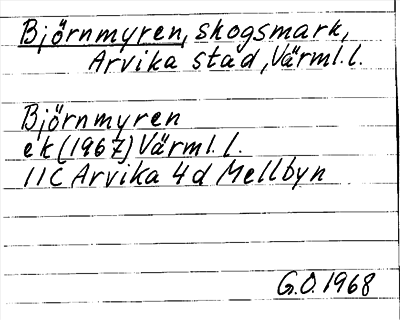 Björnmyren, skogsmark,
Arvika stad, Värml. l.
Björnmyren
ek (1967) Värml. l.
11C Arvika 4d Mellbyn
G.O. 1968